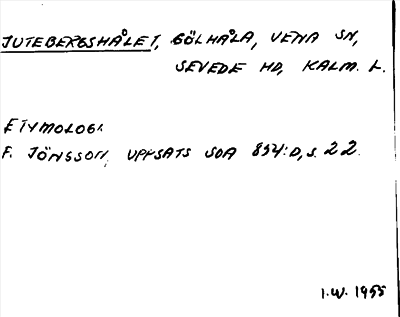 JUTEBERGSHÅLET, GÖLHÅLA, VENA SN,
SEVEDE HD, KALM. L.
ETYMOLOGI.
F. JÖNSSON, UPPSATS SOA 854:D, S. 22.
I.W. 1955